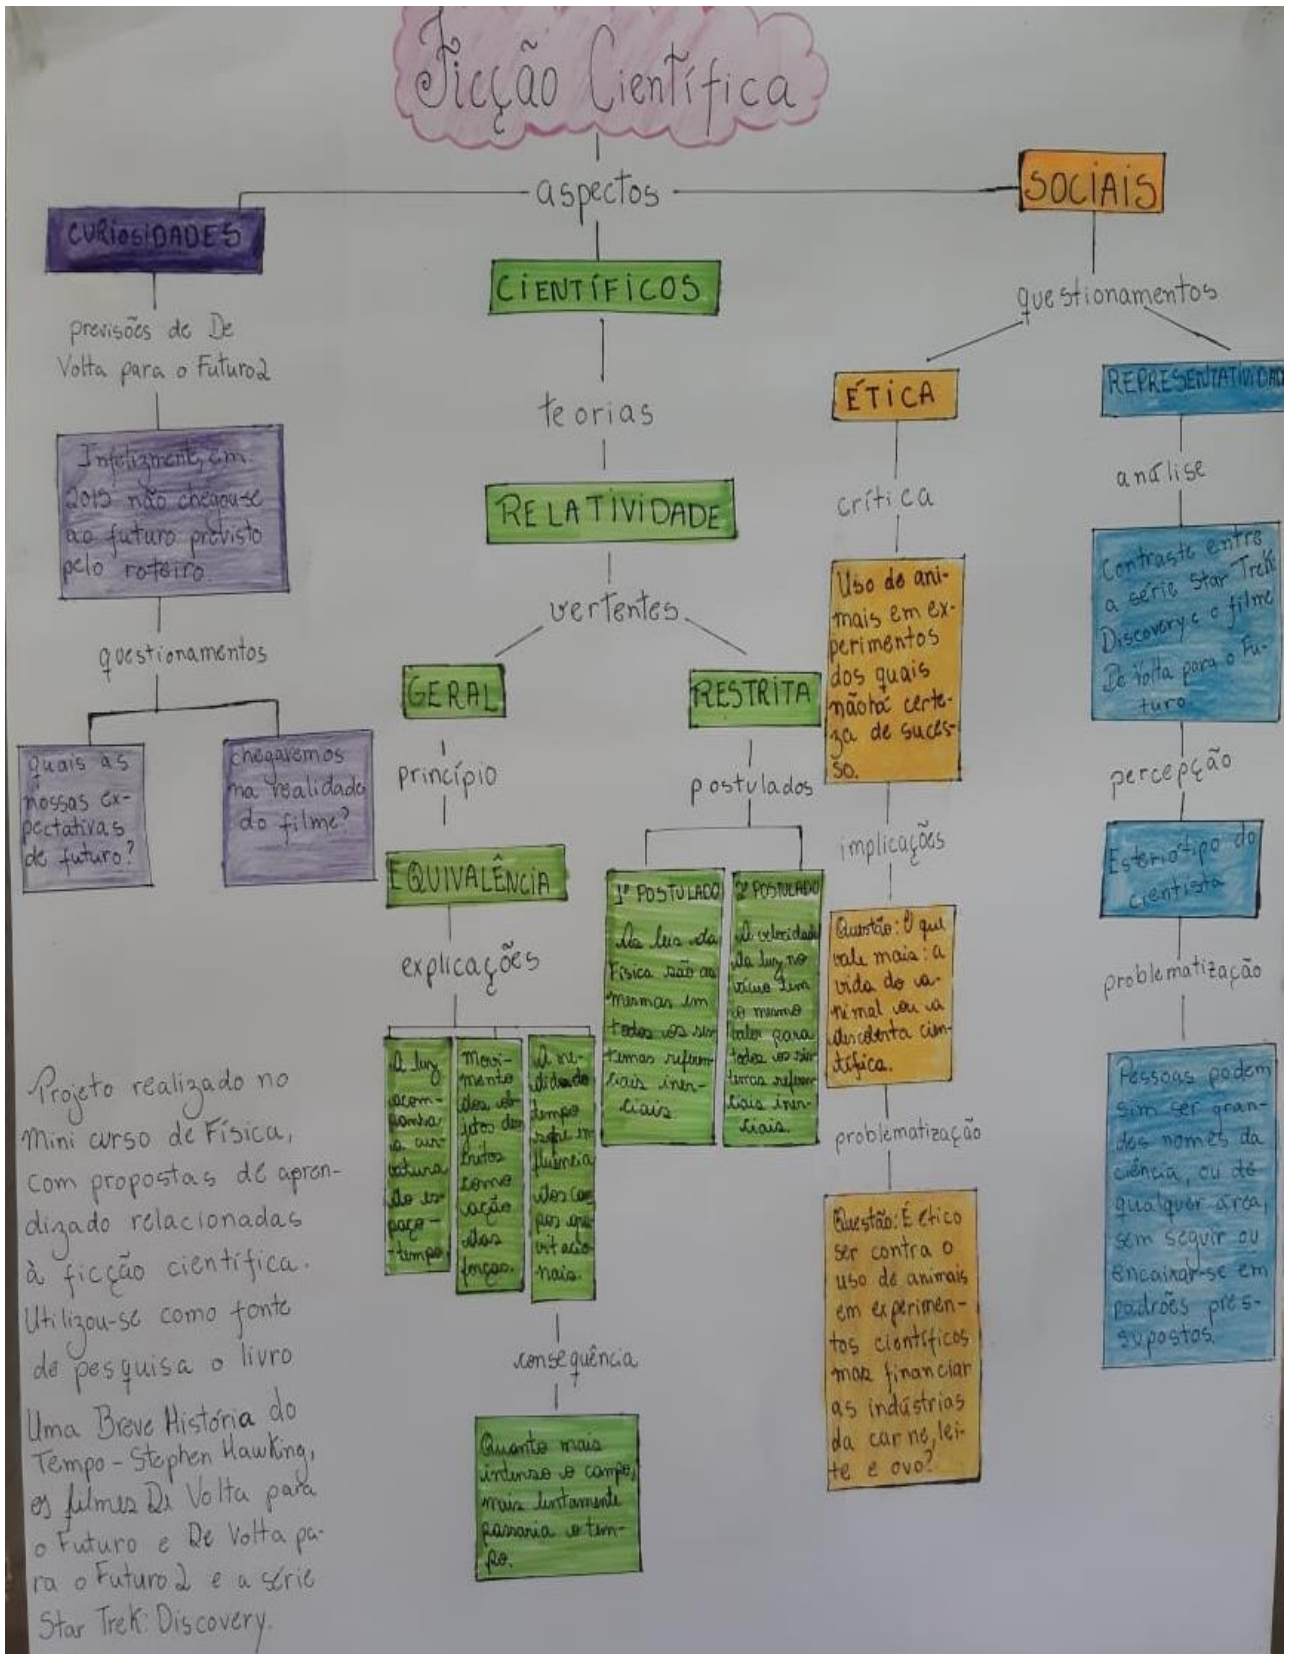 Ficção Científica
aspectos
CURIOSIDADES
previsões de De
Volta para o Futuro2
Infelizment, em
2015 não chegou-se
ao futuro previsto
pelo roteiro.
questionamentos
quais as
nossas ex-
pectativas
de futuro?
chegaremos
na realidade
do filme?
CIENTÍFICOS
teorias
RELATIVIDADE
vertentes
GERAL
princípio
EQUIVALÊNCIA
explicações
A luz
acom-
panha
a cur-
vatura
do es-
paço-
-tempo
movi-
mento
dos ob-
jetos des-
critos
como
ação
das
forças.
A me-
dida do
tempo
sofre in
fluência
dos cam
pos gra-
vitacio
nais.
consequência
Quanto mais
intenso o campo,
mais lentamente
passaria o tem-
po.
RESTRITA
postulados
1º POSTULADO
As leis da
Física são as
mesmas em
todos os sis-
temas referen-
ciais iner-
ciais
2º POSTULADO
A velocidade
da luz no
vácuo tem
o mesmo
valor para
todos os sis-
temas referen-
ciais iner-
ciais.
SOCIAIS
questionamentos
ÉTICA
crítica
Uso de ani-
mais em ex-
perimentos
dos quais
não há certe-
za de suces-
so.
implicações
Questão: O que
vale mais: a
vida do a-
nimal ou a
descoberta cien-
tífica.
problematização
Questão: É ético
ser contra o
uso de animais
em experimen-
tos científicos
mas financiar
as indústrias
da carne, lei-
te e ovo?
REPRESENTATIVIDAD
análise
Contraste entre
a série Star Trek
Discovery e o filme
De Volta para o Fu-
turo.
percepção
Esteriótipo do
cientista
problematização
Pessoas podem
sim ser gran-
des nomes da
ciência, ou de
qualquer área,
sem seguir ou
encaixar-se em
padrões pres-
supostos.
Projeto realizado no
mini curso de Física,
com propostas de apren-
dizado relacionadas
à ficção científica.
Utilizou-se como fonte
de pesquisa o livro
Uma Breve História do
Tempo - Stephen Hawking,
os filmes De Volta para
o Futuro e De Volta pa-
ra o Futuro 2 e a série
Star Trek: Discovery.